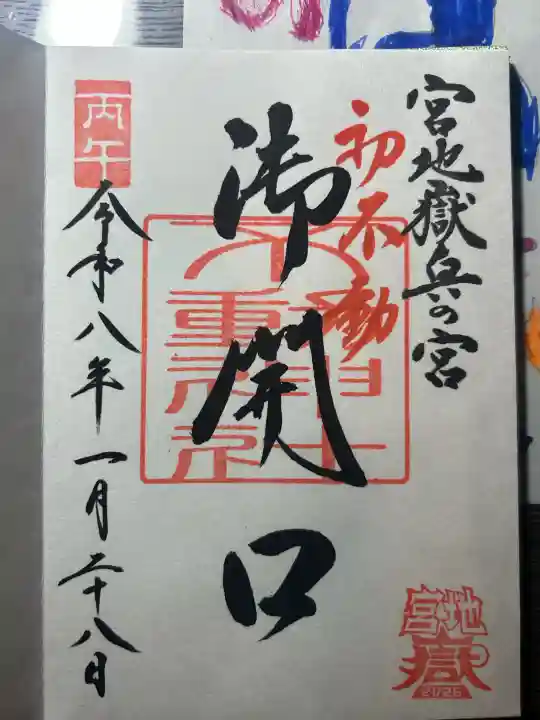 宮地嶽奥の宮
初不動
御開口
丙午
令和八年一月二十八日
宮地嶽
2026